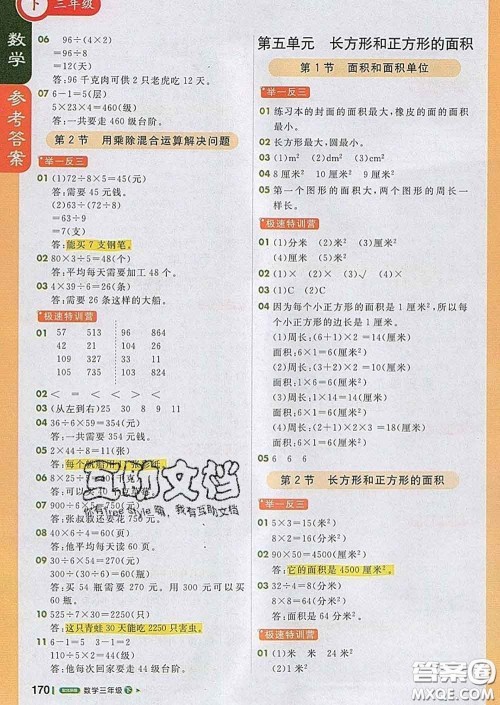 下 三年级
数学
参考答案
06 96÷(4×2)
=96÷8
=12(天)
答:96千克肉可供2只老虎吃12天。
07 6-1=5(层)
5×23×4=460(级)
答:一共要走460级台阶。
第2节 用乘除混合运算解决问题
举一反三
01 (1)72÷8×5=45(元)
答:需要45元钱。
(2)63÷(72÷8)
=63÷9
=7(支)
答:能买7支钢笔。
02 80×3÷5=48(个)
答:平均每天需要加工48个。
03 4×39÷6=26(条)
答:需要26条这样的大船。
极速特训营
01 57 513 96 864
42 21 104 312
109 327 33 11
344 43 8 136
02 < = < < >
03 (从左到右)25 30 8 9 11
04 36÷6×59=354(元)
答:一共需要354元钱。
05 2×44÷8=11(张)
06 8×25÷
07
答:张叔叔还要花750元。
09 300÷(30÷6)=60(瓶)
300÷(150÷30)=60(瓶)
答:买54瓶需要270元。用300元可以
买60瓶。
10 525÷7×30=2250(只)
答:这只青蛙30天能吃2250只害虫。
11 6-1=5 3-1=2
110÷5×2=44(级)
答:一共要走44级台阶。
170 数学三年级 下
第五单元 长方形和正方形的面积
第1节 面积和面积单位
举一反三
01 练习本的封面的面积最大,橡皮的面的面积
最小。
02 长方形最大,圆最小。
03 (1)m² (2)dm² (3)cm²
04 8厘米² 9厘米² 10厘米²
05 第一个图形的面积大,两个图形的周长一
样长。
极速特训营
01 (1)分米 (2)米² (3)米 (4)厘米²
02 (1)× (2)× (3)√ (4)×
03 (1)C (2)C (3)C
04 因为每个小正方形的面积是1厘米²,所以每
个小正方形的边长是1厘米。
(1)周长:(6+1)×2=14(厘米)
面积:6×1=6(厘米²)
(2)周长:(3+2)×2=10(厘米)
面积:3×2=6(厘米²)
(3)周长:1×14=14(厘米)
面积:6×1=6(厘米²)
05 6 6 6
第2节 长方形和正方形的面积
举一反三
01 5×3=15(厘米²)
8×2=16(厘米²)
02 90×50=4500(厘米²)
答:它的面积是4500厘米²。
03 32÷4=8(分米)
8×8=64(分米²)
答:面积是64分米²。
极速特训营
互助文档
你有Free style嘛,我有互助文档
答案圈
MXQE.COM